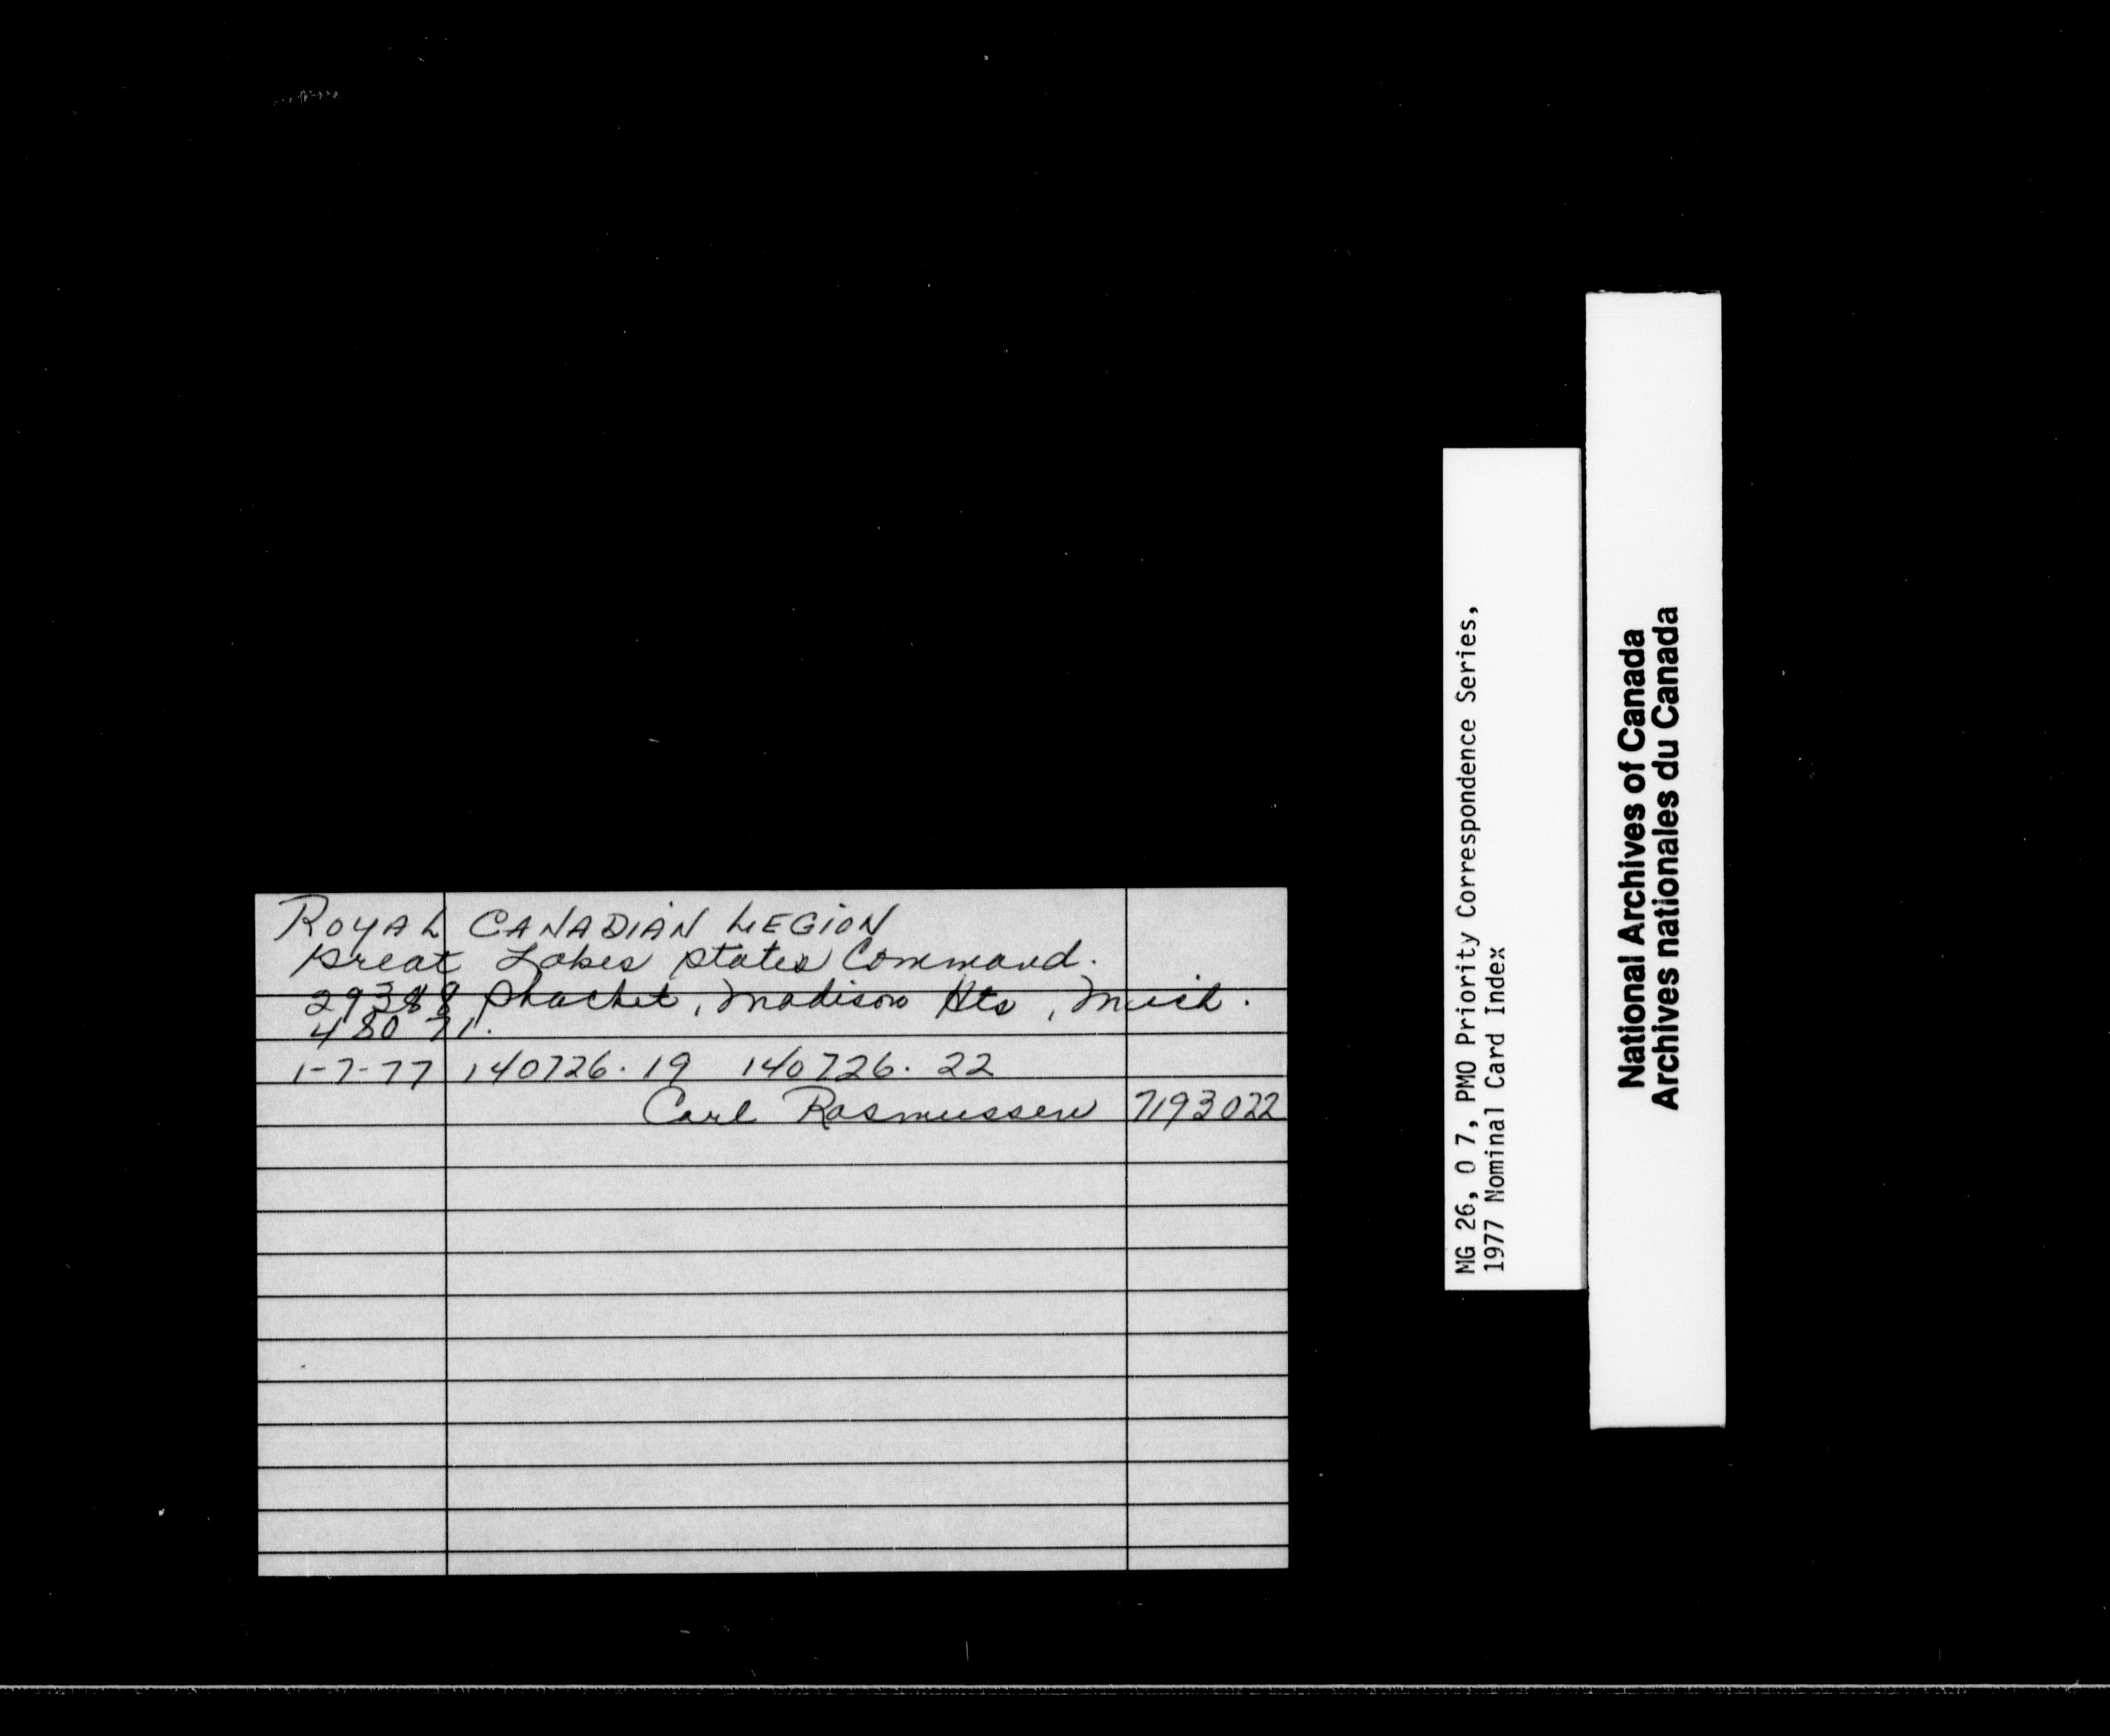 ROYAL CANADIAN LEGION
Great Lakes States Command.
29388 Shacket, Madison Hts, Mich.
48071.
1-7-77 140726.19 140726.22
Carl Rasmussen 7193022
MG 26, O 7, PMO Priority Correspondence Series,
1977 Nominal Card Index
National Archives of Canada
Archives nationales du Canada